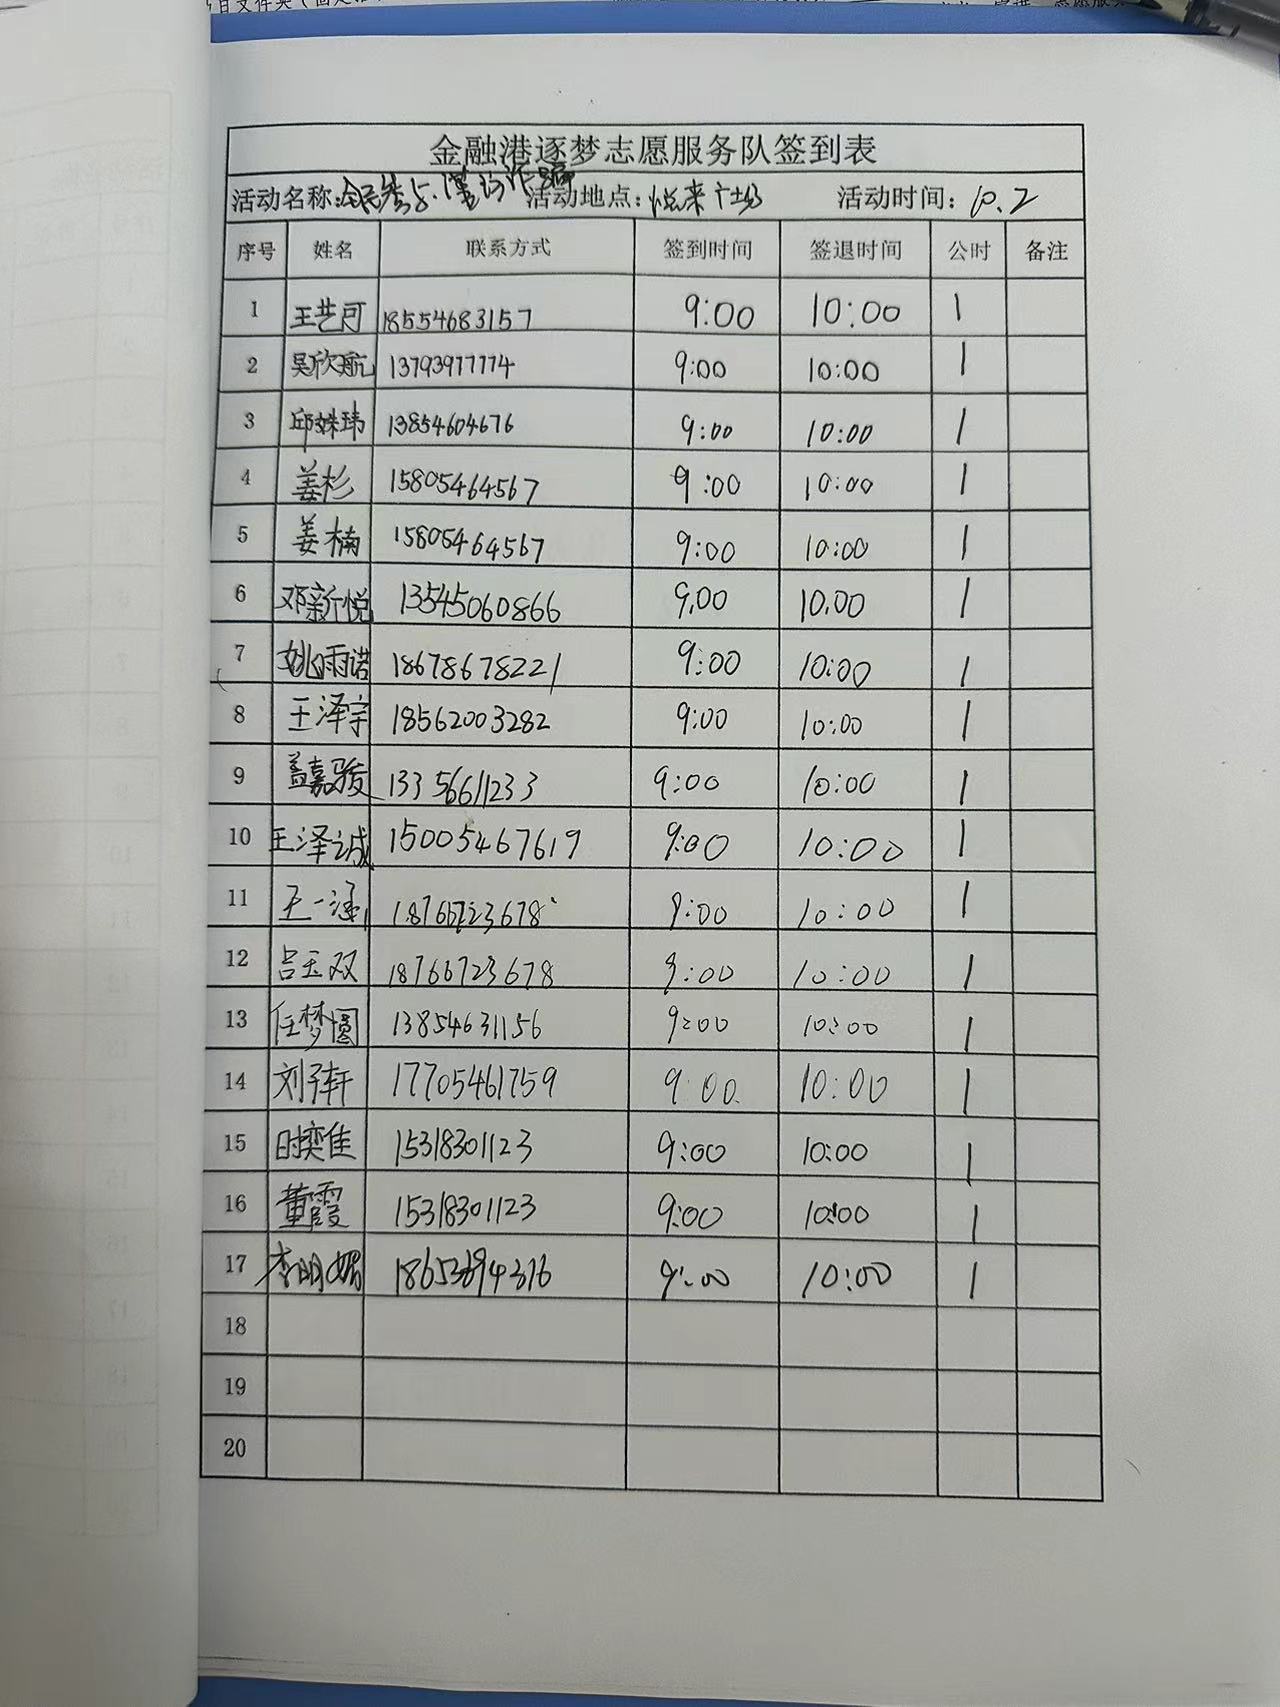 金融港逐梦志愿服务队签到表
活动名称:全民参与.谨防诈骗 活动地点:悦来广场 活动时间:10.2
序号 姓名 联系方式 签到时间 签退时间 公时 备注
1 王艺可 18554683157 9:00 10:00 1
2 吴欣航 13793977774 9:00 10:00 1
3 邱姝玮 13854604676 9:00 10:00 1
4 姜杉 15805464567 9:00 10:00 1
5 姜楠 15805464567 9:00 10:00 1
6 邓新悦 13545060866 9:00 10:00 1
7 姚雨诺 18678678221 9:00 10:00 1
8 王泽宇 18562003282 9:00 10:00 1
9 盖嘉骏 13356611233 9:00 10:00 1
10 王泽诚 15005467619 9:00 10:00 1
11 王一涵 18766723678 9:00 10:00 1
12 吕玉双 18766723678 9:00 10:00 1
13 任梦圆 13854631156 9:00 10:00 1
14 刘子轩 17705461759 9:00 10:00 1
15 时奕佳 15318301123 9:00 10:00 1
16 董霞 15318301123 9:00 10:00 1
17 李明媚 9:00 10:00 1
18
19
20